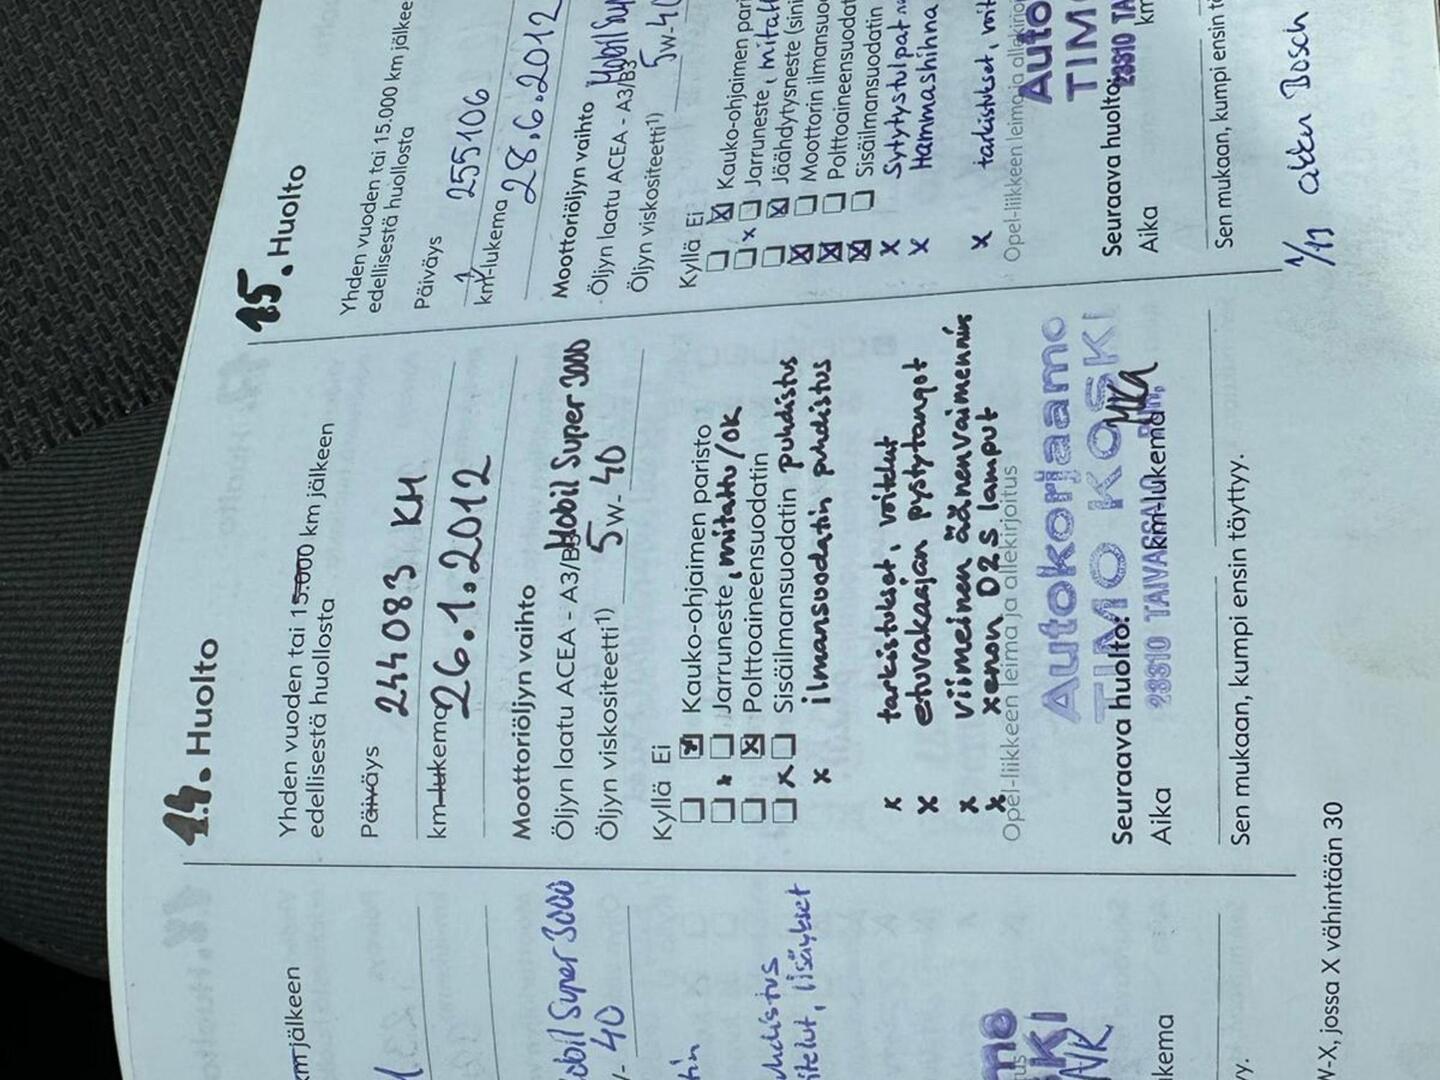 km jälkeen
Mobil Super 3000
40
lisäykset
kema
W-X, jossa X vähintään 30
14. Huolto
Yhden vuoden tai 15.000 km jälkeen
edellisestä huollosta
Päiväys
244083 KM
km-lukema
26.1.2012
Moottoriöljyn vaihto
Öljyn laatu ACEA - A3/B3 Mobil Super 3000
Öljyn viskositeetti1) 5W-40
Kyllä Ei
Kauko-ohjaimen paristo
x Jarruneste, mitattu/OK
Polttoaineensuodatin
x Sisäilmansuodatin puhdistus
x ilmansuodatin puhdistus
x tarkistukset, voitelut
x etuvakaajan pystytangot
x viimeinen äänenvaimennin
x xenon D2S lamput
Opel-liikkeen leima ja allekirjoitus
Autokorjaamo
TIMO KOSKI
Seuraava huolto:
Aika
km-lukema
Sen mukaan, kumpi ensin täyttyy.
15. Huolto
Yhden vuoden tai 15.000 km jälkee
edellisestä huollosta
Päiväys
255106
km-lukema
28.6.2012
Moottoriöljyn vaihto
Öljyn laatu ACEA - A3/B3 Mobil Sup
Öljyn viskositeetti1) 5W-40
Kyllä Ei
Kauko-ohjaimen pari
x Jarruneste, mitatt
Jäähdytysneste (sini
Moottorin ilmansuo
Polttoaineensuodat
Sisäilmansuodatin
x Sytytystulpat
x Hammashihna
x tarkistukset, voit
Opel-liikkeen leima ja allekirjo
Auto
TIM
Seuraava huolto:
Aika
km
Sen mukaan, kumpi ensin tä
akku Bosch